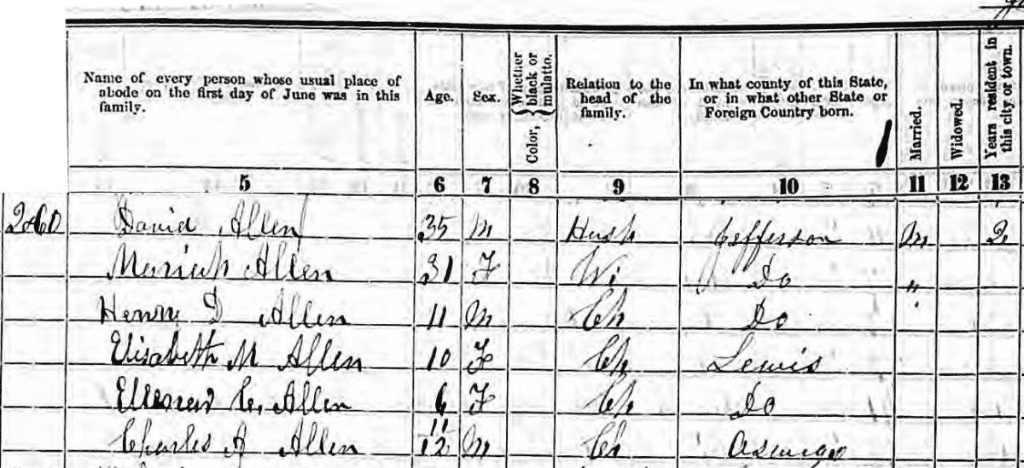 Name of every person whose usual place of abode on the first day of June was in this family. Age. Sex. Color, { Whether black or mulatto. Relation to the head of the family. In what county of this State, or in what other State or Foreign Country born. Married. Widowed. Years resident in this city or town.
5 6 7 8 9 10 11 12 13
260 David Allen 35 M Hush Jefferson M 2
Mariah Allen 31 F Wi Do "
Henry D Allen 11 M Ch Do
Elisabeth M Allen 10 F Ch Lewis
C. Allen 6 F Ch Do
Charles A Allen 11/12 M Ch